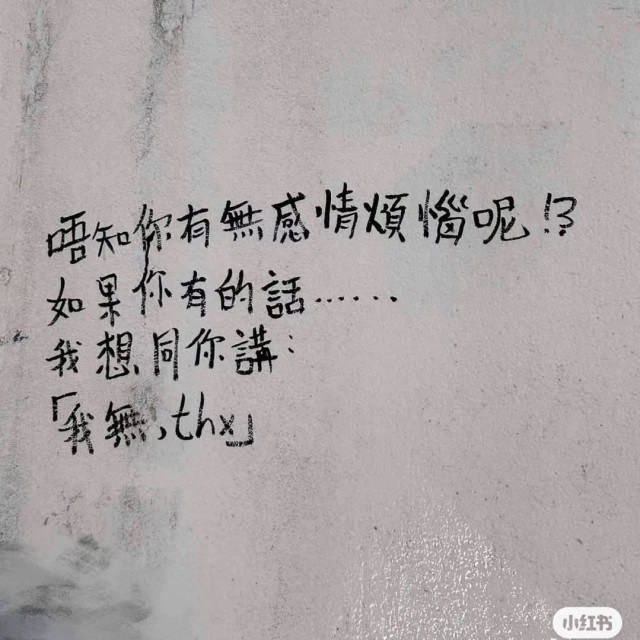 唔知你有無感情煩惱呢!?
如果你有的話......
我想同你講:
「我無,thx」
小红书